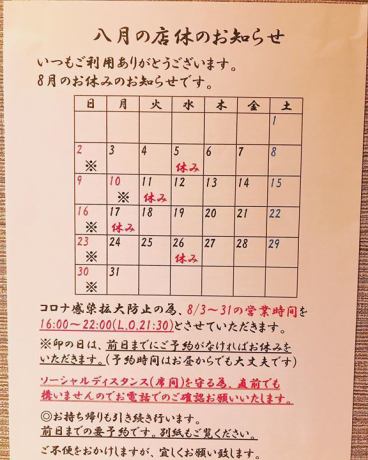 八月の店休のお知らせ
いつもご利用ありがとうございます。
8月のお休みのお知らせです。
日 月 火 水 木 金 土
1
2 3 4 5 6 7 8
※ 休み
9 10 11 12 13 14 15
※ 休み
16 17 18 19 20 21 22
※ 休み
23 24 25 26 27 28 29
※ 休み
30 31
※
コロナ感染拡大防止の為、8/3〜31の営業時間を
16:00〜22:00(L,O.21:30)とさせていただきます。
※印の日は、前日までにご予約がなければお休みを
いただきます。(予約時間はお昼からでも大丈夫です)
ソーシャルディスタンス(席間)を守る為、直前でも
構いませんのでお電話でのご確認お願いいたします。
◎お持ち帰りも引き続き行います。
前日までの要予約です。別紙もご覧ください。
ご不便をおかけしますが、宜しくお願い致します。